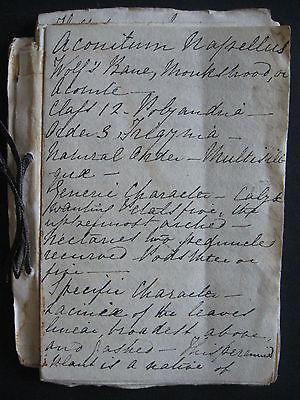 Aconitum Napellus
Wolf's Bane, Monkshood, or
Aconite —
Class 12. Polyandria —
Order 3 Trigynia —
Natural Order — Multisili-
quæ —
Generic Character — Calyx
wanting Petals five, the
uppermost arched —
Nectaries two peduncled
recurved Pods three or
five —
Specific Character —
Laciniæ of the leaves
linear, broadest above,
and gashed — This perennial
plant is a native of